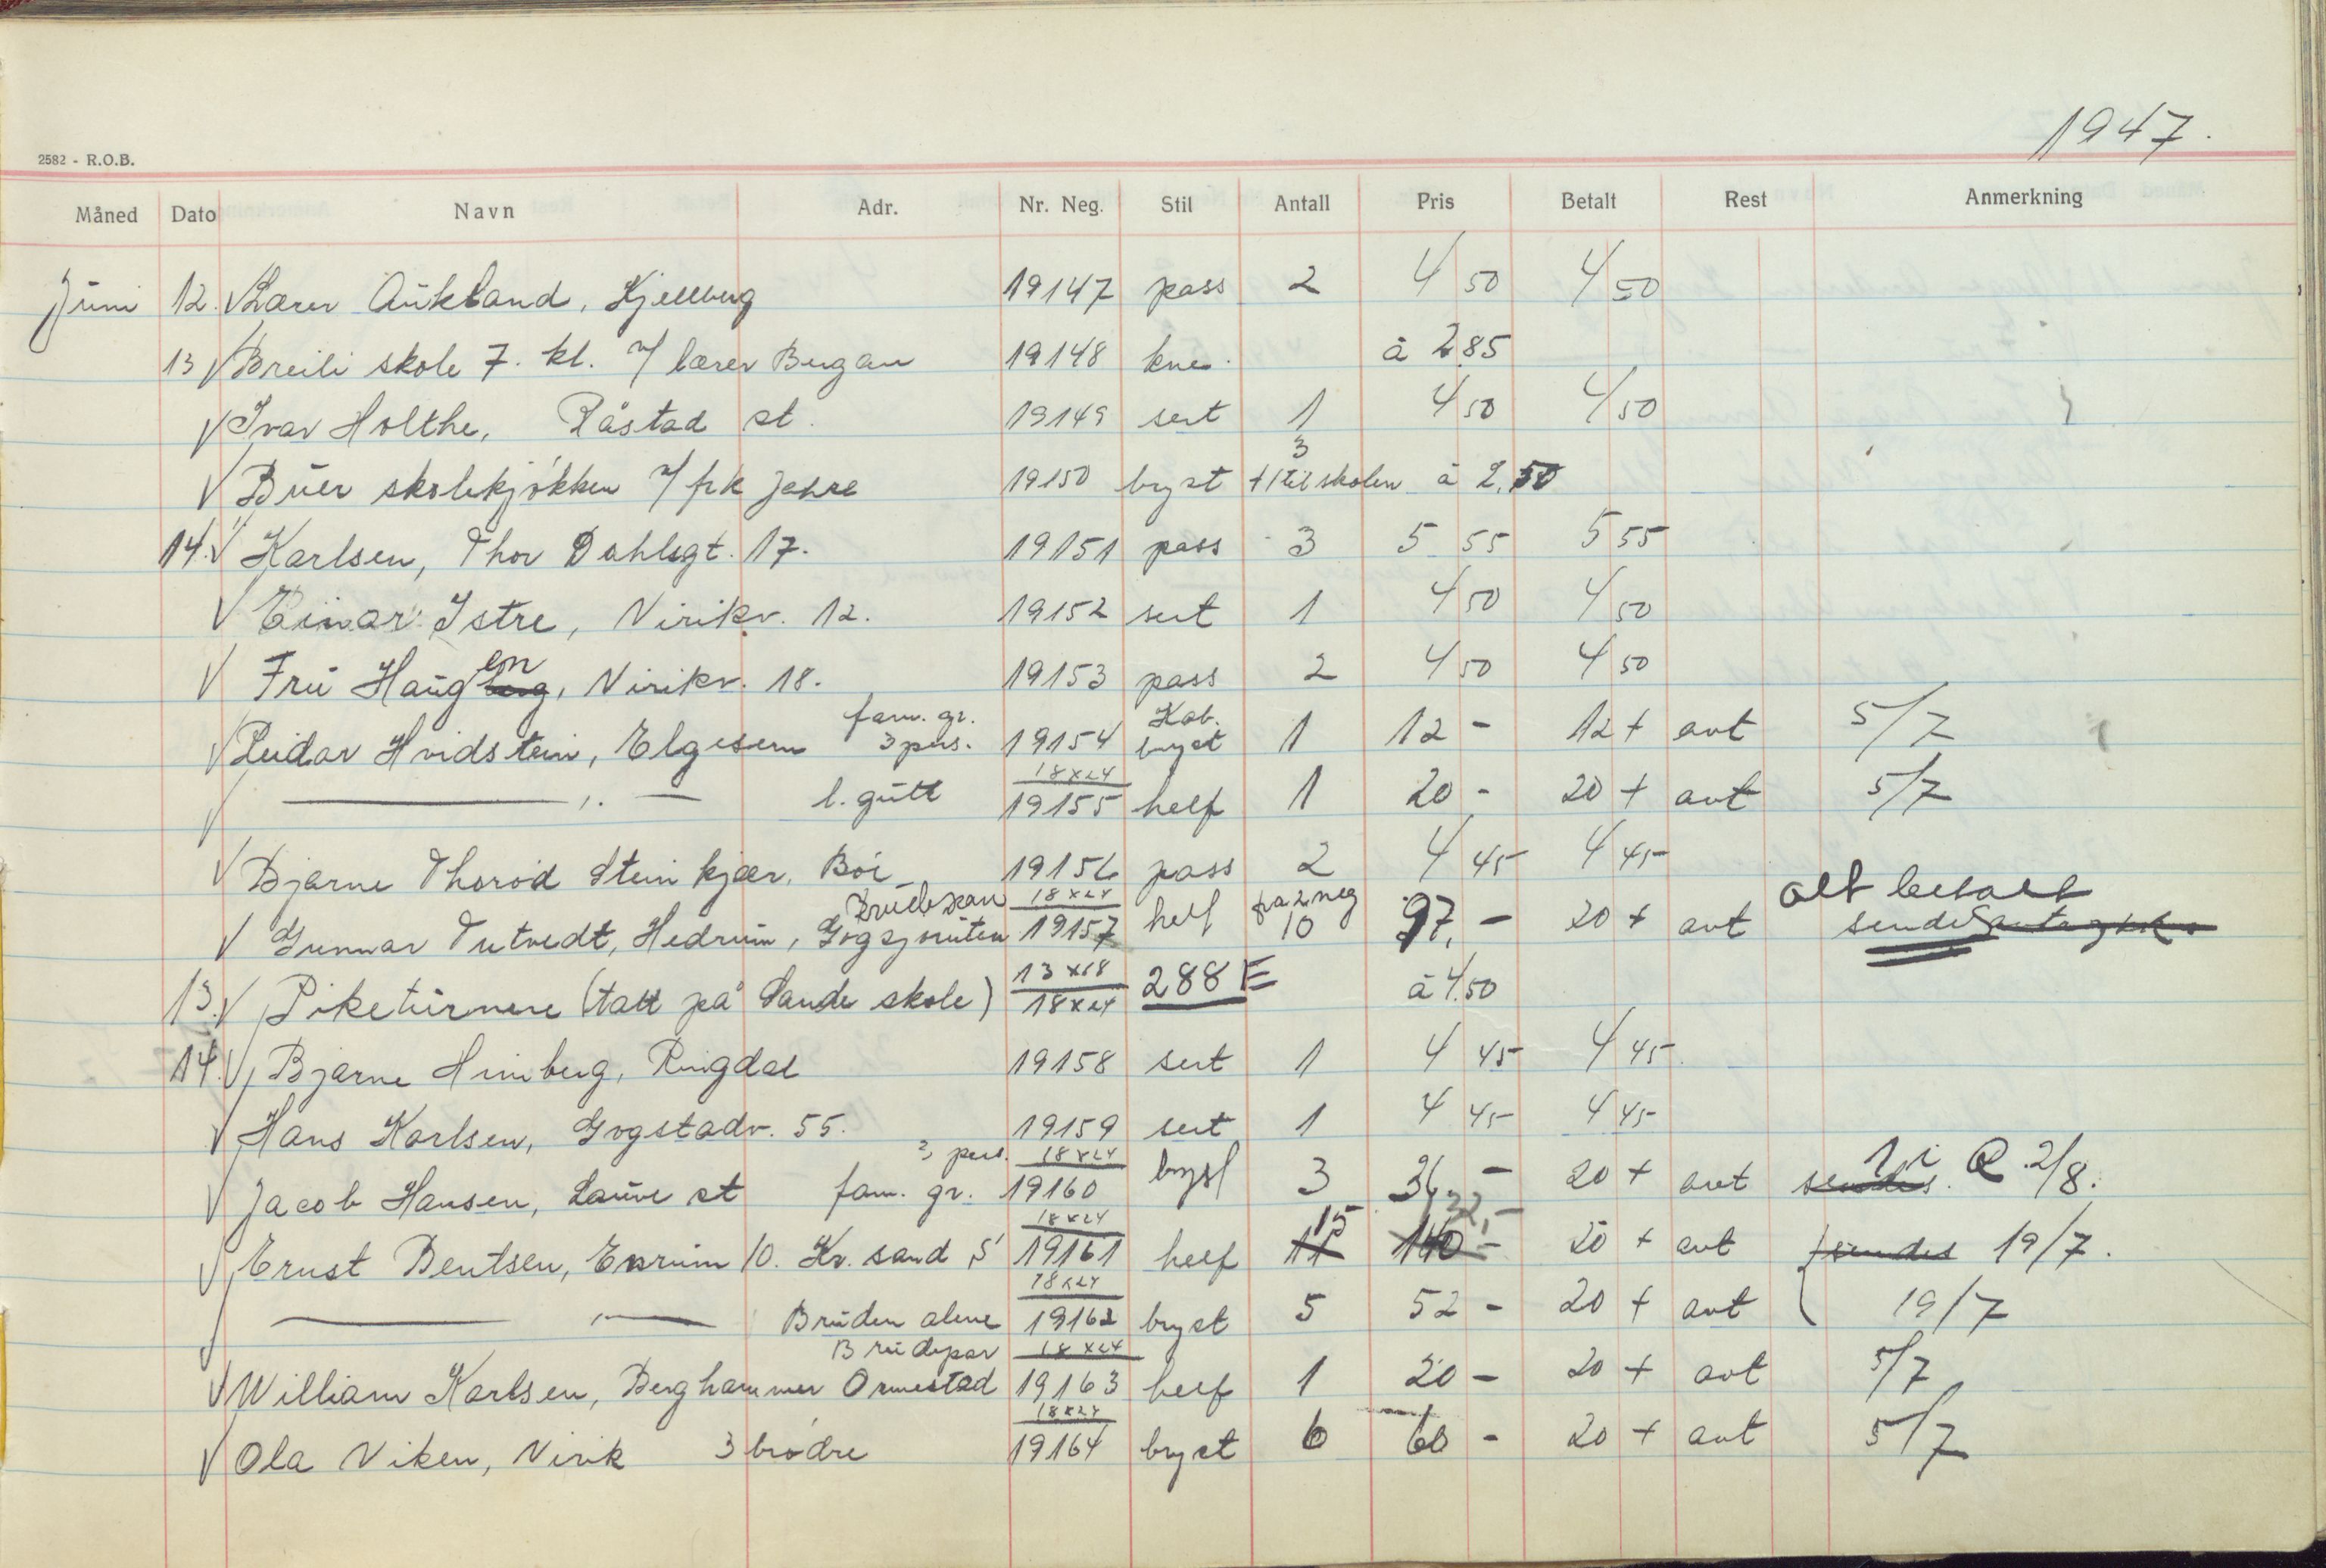 1947.
2582 - R.O.B.
Måned Dato Navn Adr. Nr. Neg. Stil Antall Pris Betalt Rest Anmerkning
Juni 12. √ Lærer Aukland, Kjellberg 19147 pass 2 4 50 4 50
13 √ Breili skole 7. kl. v/ lærer Bugan 19148 kne. à 2.85
√ Ivar Holthe, Råstad st. 19149 sert 1 4 50 4 50
3
√ Buer skolekjøkken v/ frk Jahre 19150 bryst + 1 til skolen à 2.50
14. √ Karlsen, Thor Dahlsgt. 17. 19151 pass 3 5 55 5 55
√ Einar Istre, Nirikv. 12. 19152 sert 1 4 50 4 50
en
√ Fru Haugberg, Nirikv. 18. 19153 pass 2 4 50 4 50
fam. gr. Kab.
√ Reidar Hvidstein, Elgesem 3 pers. 19154 bryst 1 12 - 12 + avt 5/7
18x24
√ —— " — l. gutt 19155 helf 1 20 - 20 + avt 5/7
√ Bjarne Thorød Steinkjær, Bøi 19156 pass 2 4 45 4 45
Brudepar 18x24 fra 2 neg alt betalt
√ Gunnar Tutvedt, Hedrum, 19157 helf 10 97, - 20 + avt sendes
13x18
13. √ Piketurnere (tatt på Sande skole) 18x24 288 E à 4.50
14. √ Bjarne Himberg, Ringdal 19158 sert 1 4 45 4 45
√ Hans Karlsen, Gogstadv. 55. 19159 sert 1 4 45 4 45
3 pers. 18x24 1 i R 2/8.
√ Jacob Hansen, Lauve st fam. gr. 19160 bryst 3 36 - 20 + avt sendes.
18x24 15 132,-
√ Ernst Bentsen, 10. Kr. sand S 19161 helf 11 140 - 20 + avt sendes 19/7.
18x24
—— " — Bruden alene 19162 bryst 5 52 - 20 + avt 19/7
Brudepar 18x24
√ William Karlsen, Berghammer Ormestad 19163 helf 1 20 - 20 + avt 5/7
18x24
√ Ola Viken, Nirik 3 brødre 19164 bryst 6 60 - 20 + avt 5/7